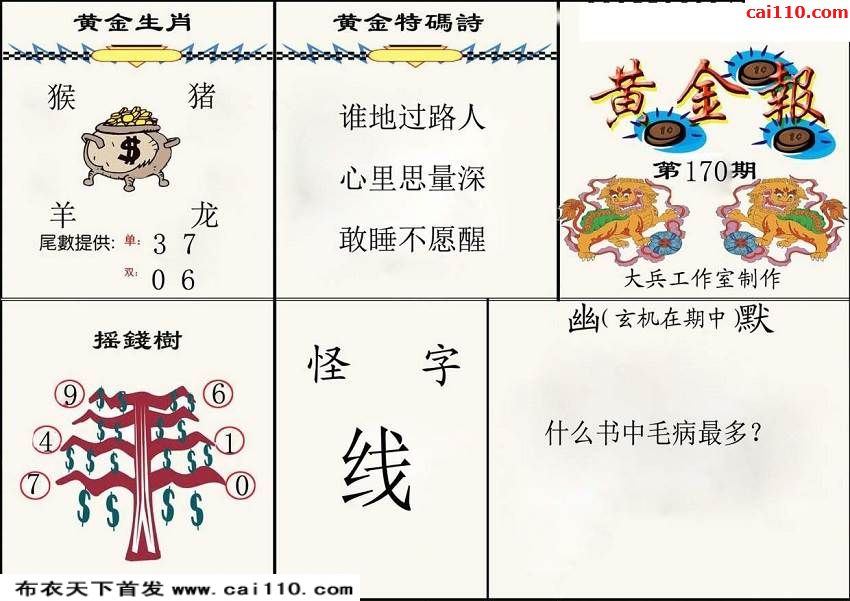 cai110.com
黄金生肖
猴 猪
$
羊 龙
尾數提供: 单: 3 7
双: 0 6
黄金特碼詩
谁地过路人
心里思量深
敢睡不愿醒
黄金報
第170期
大兵工作室制作
摇錢樹
9 6
4 1
7 0
怪 字
线
幽(玄机在期中)默
什么书中毛病最多？
布衣天下首发 www.cai110.com